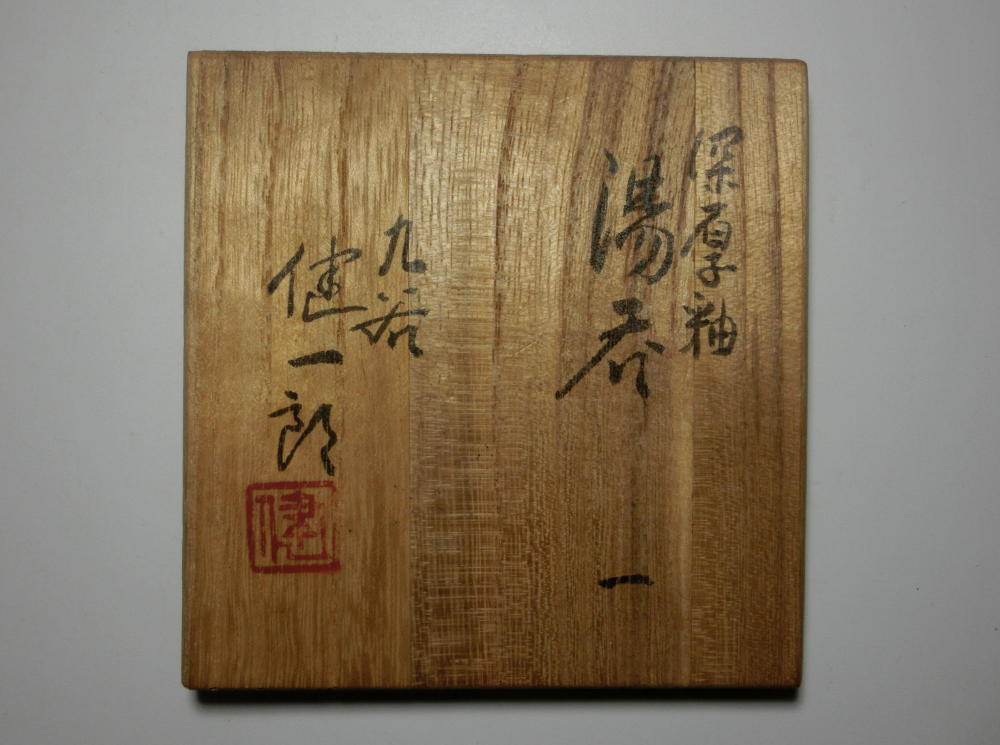 深厚釉
湯呑 一
九谷
健一郎
健